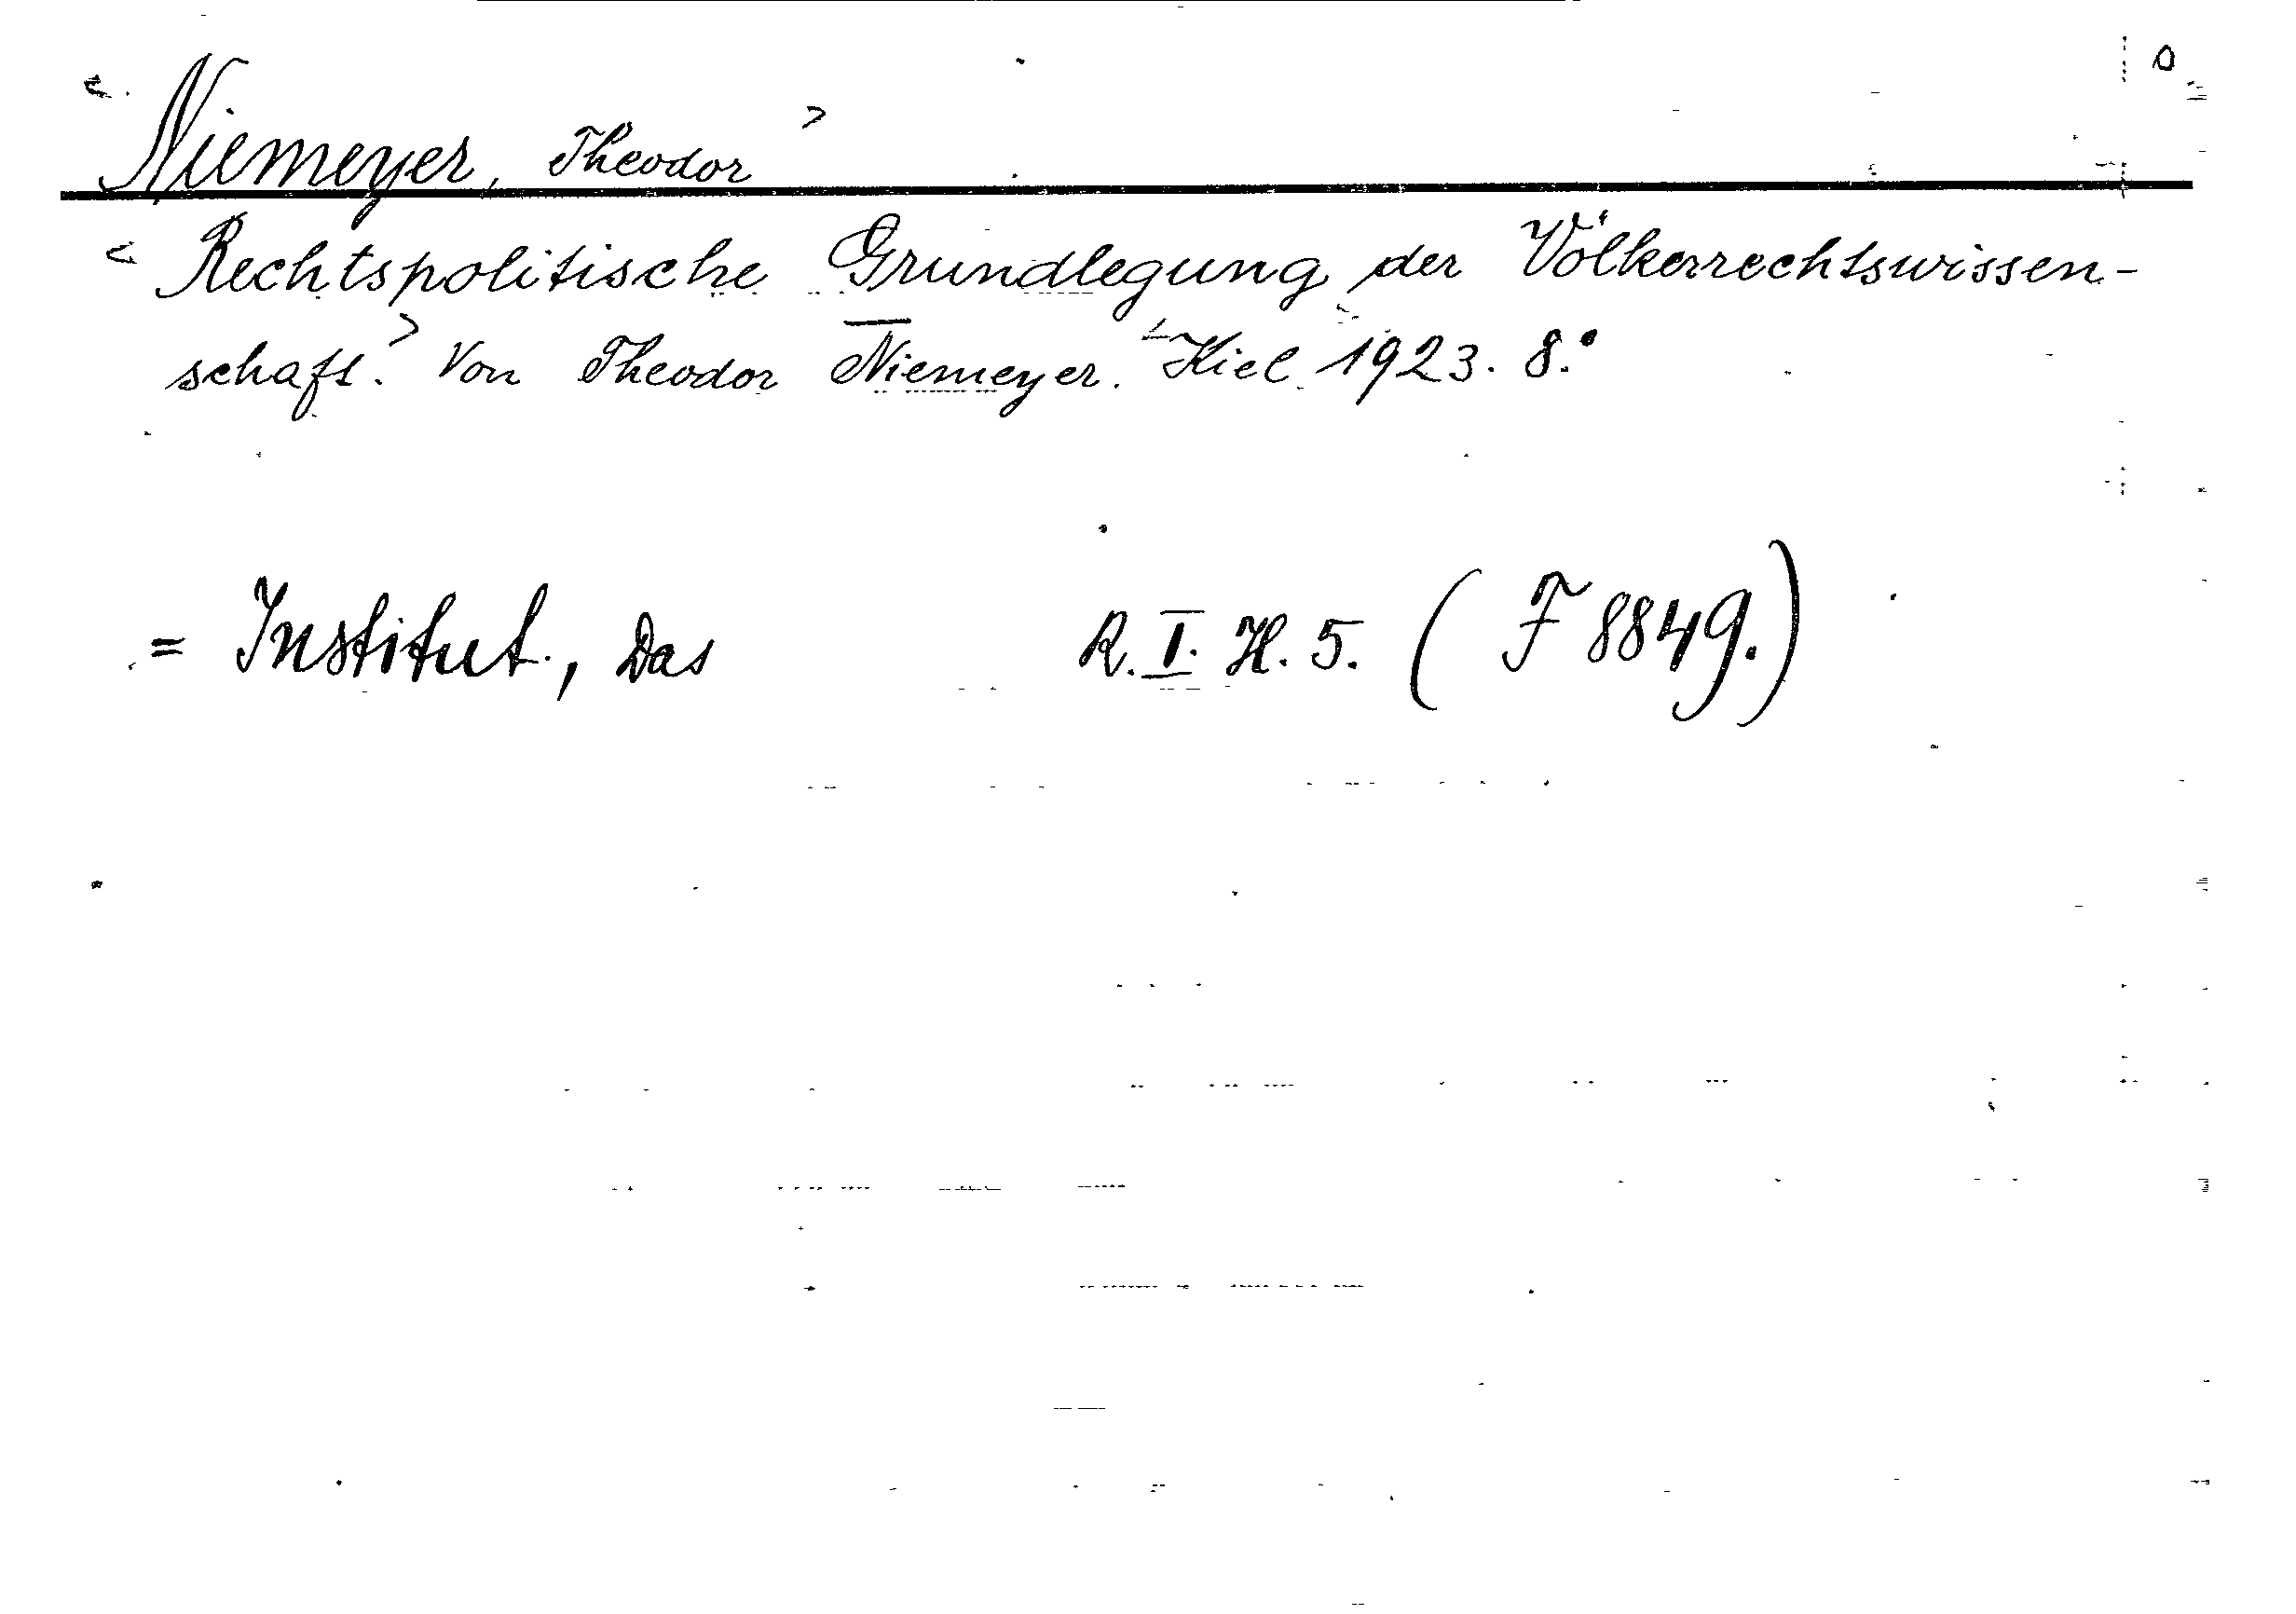 < Niemeyer, Theodor >
< Rechtspolitische Grundlegung der Völkerrechtswissen-
schaft. > Von Theodor Niemeyer. Kiel 1923. 8.°
= Institut, Das R. I. H. 5. (F 8849.)